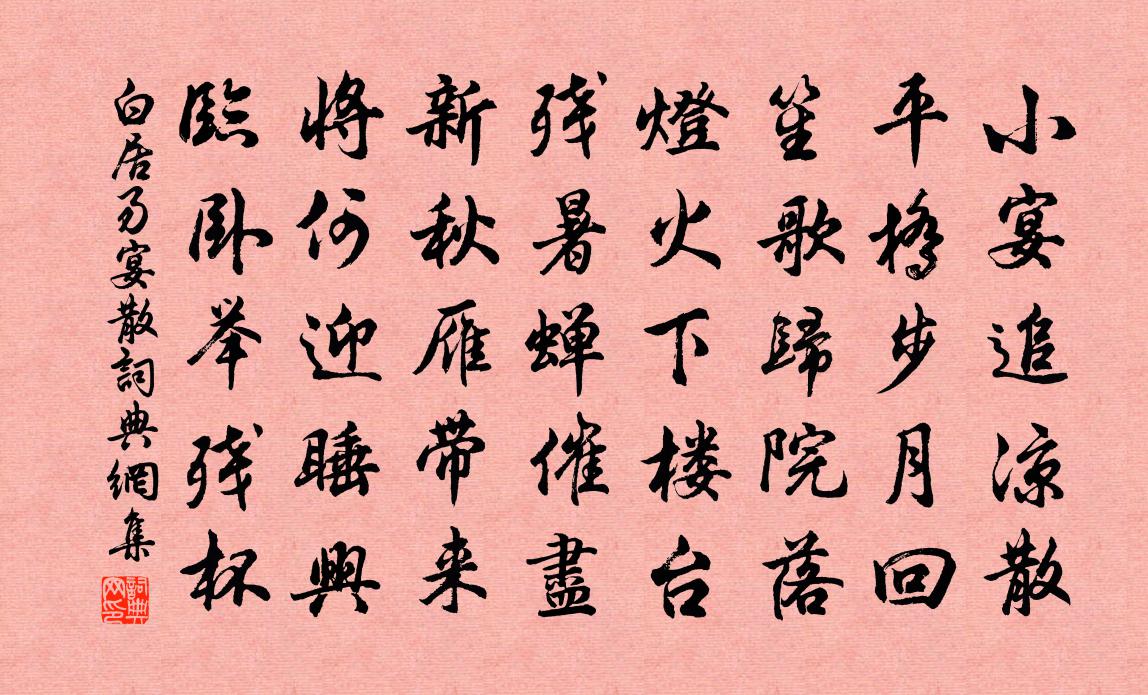 小宴追涼散
平橋步月回
笙歌歸院落
燈火下楼台
残暑蝉催盡
新秋雁带来
将何迎睡興
臨卧举残杯
白居易宴散詞典網集
詞典网印